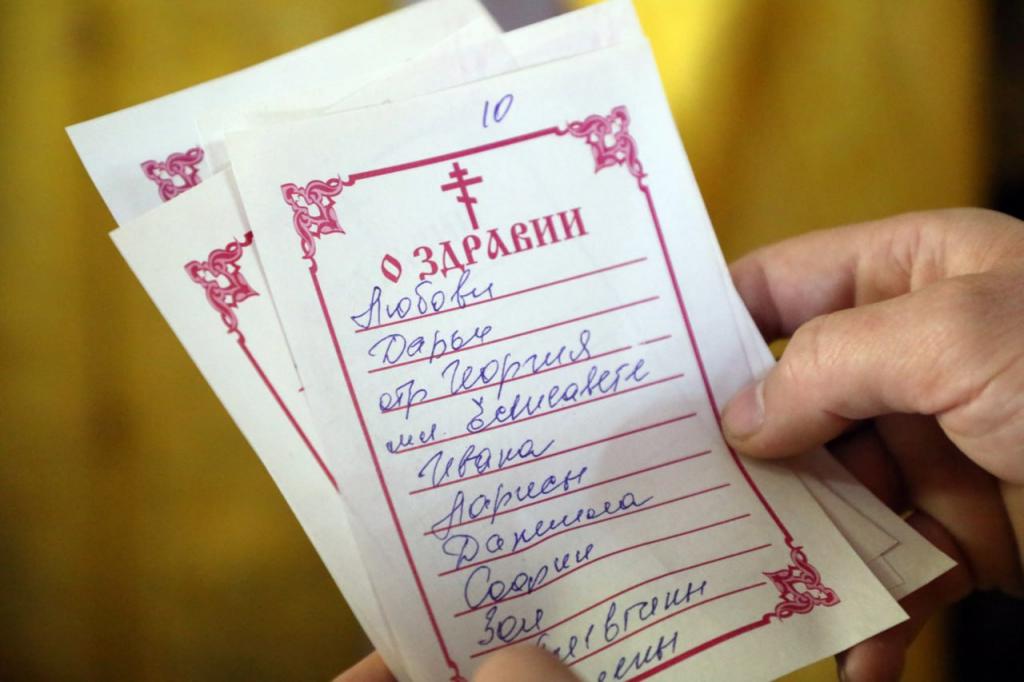 10
О ЗДРАВИИ
Любови
Дарьи
отр Георгия
мл. Елисавете
Ивана
Ларисы
Даниила
Софии
Зои